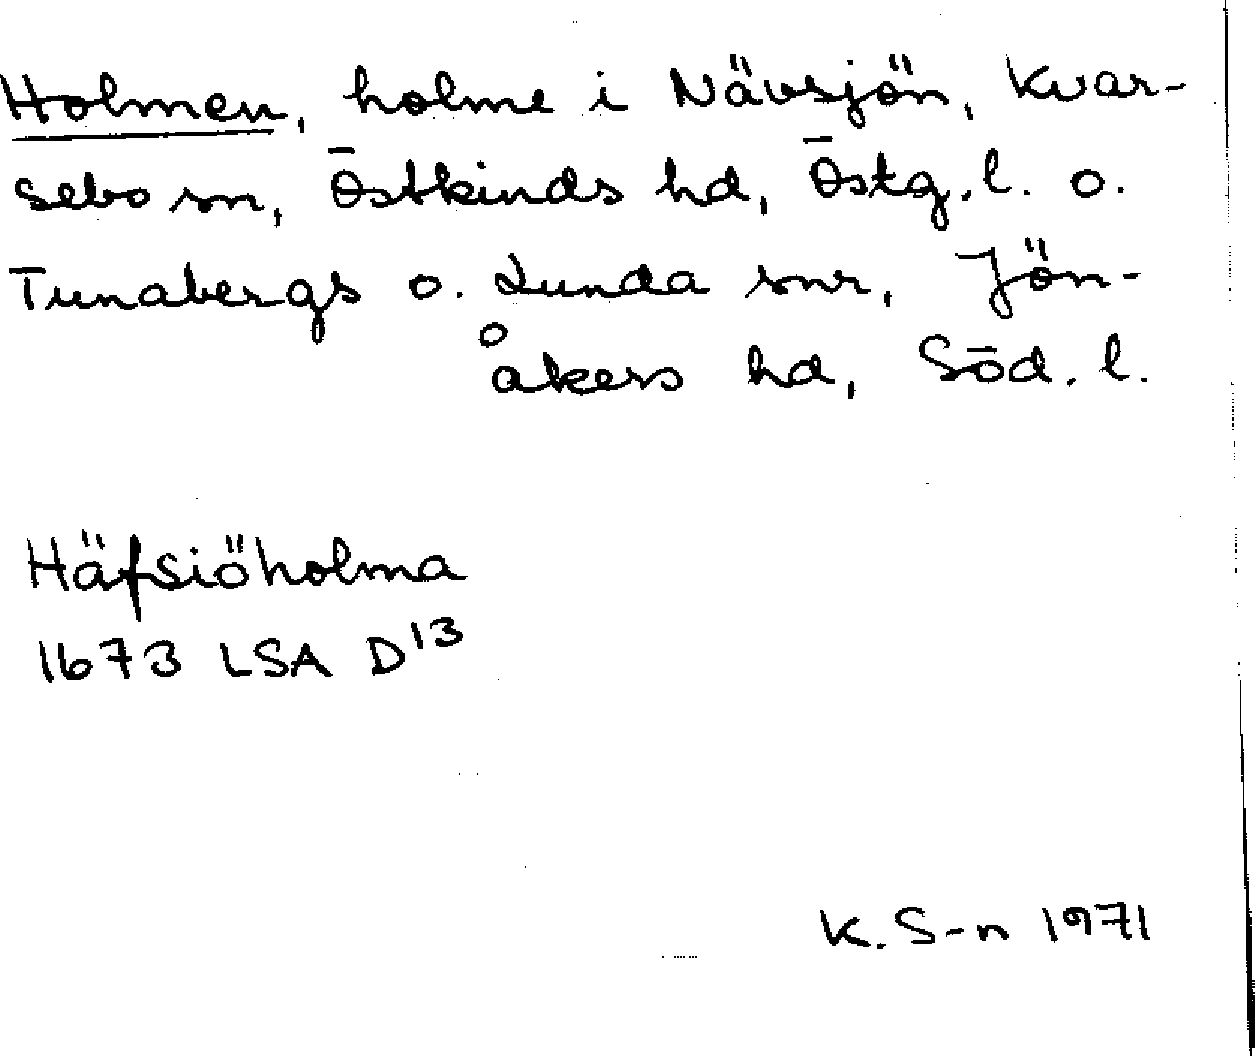 Holmen, holme i Nävsjön, Kvar-
sebo sn, Östkinds hd, Östg. l. o.
Tunabergs o. Lunda snr, Jön-
åkers hd, Söd. l.
Häfsiöholma
1673 LSA D13
K. S-n 1971